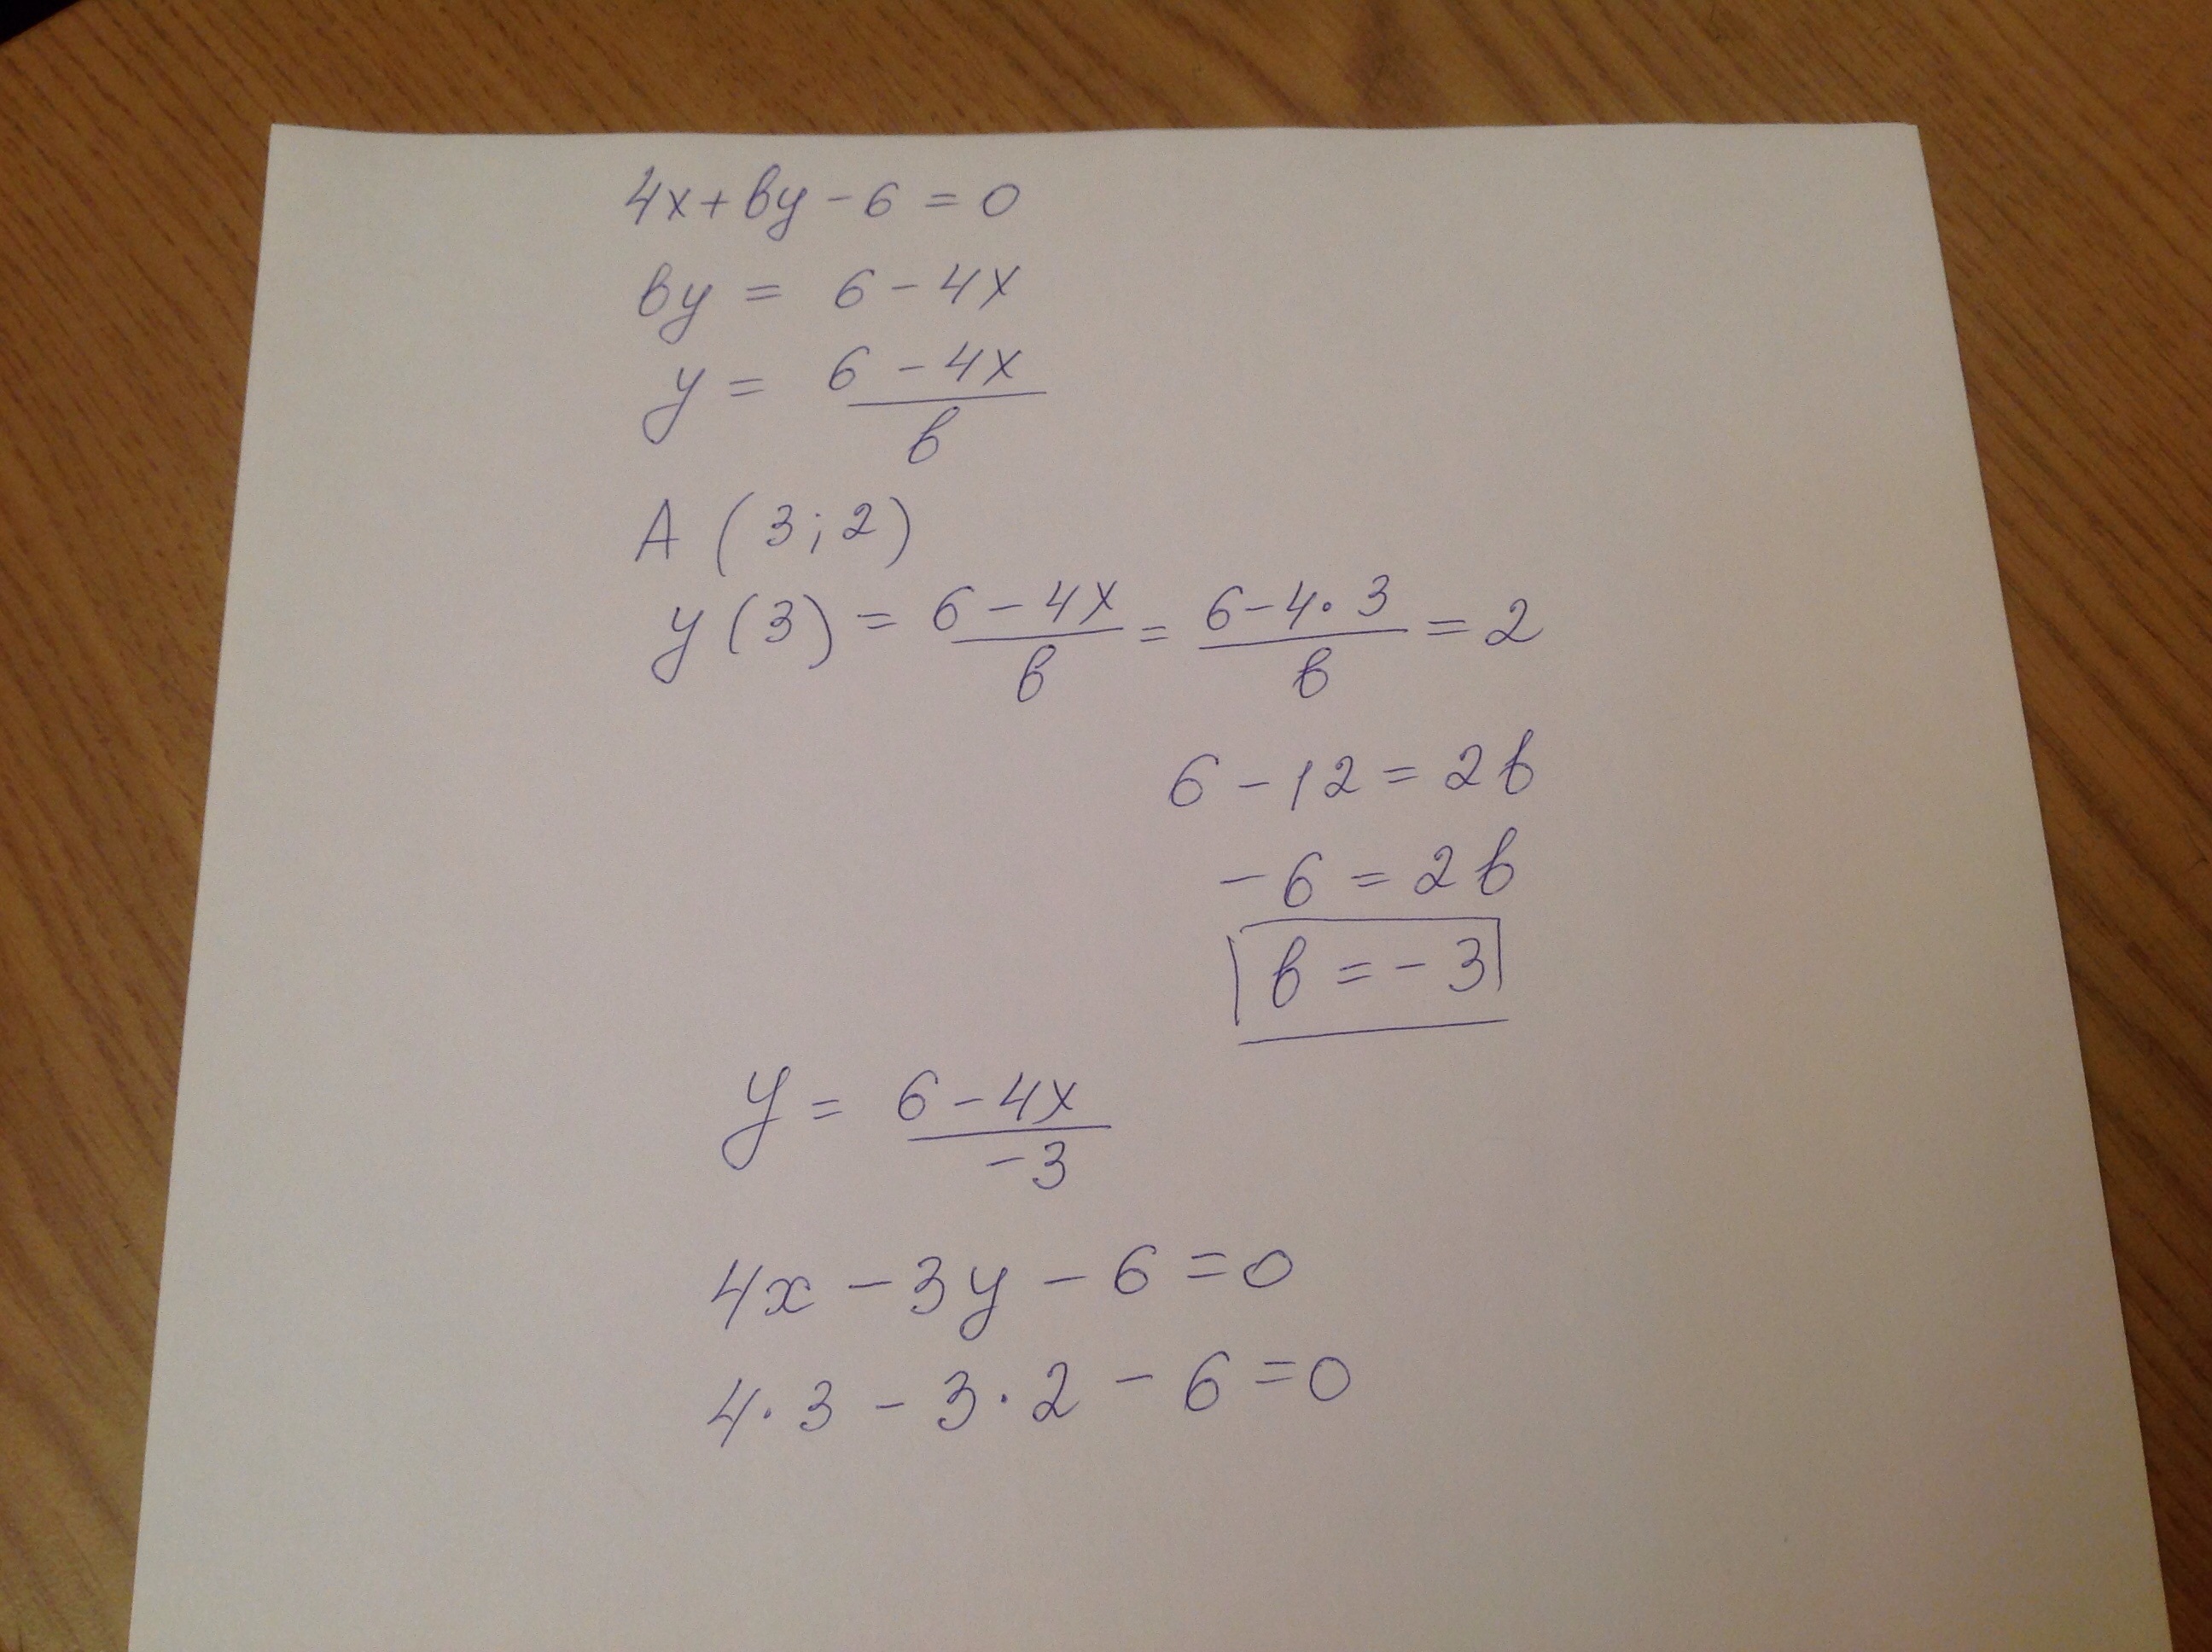 4x + by - 6 = 0
by = 6 - 4x
y = (6 - 4x)/b
A (3; 2)
y(3) = (6 - 4x)/b = (6 - 4·3)/b = 2
6 - 12 = 2b
-6 = 2b
b = -3
y = (6 - 4x)/-3
4x - 3y - 6 = 0
4·3 - 3·2 - 6 = 0